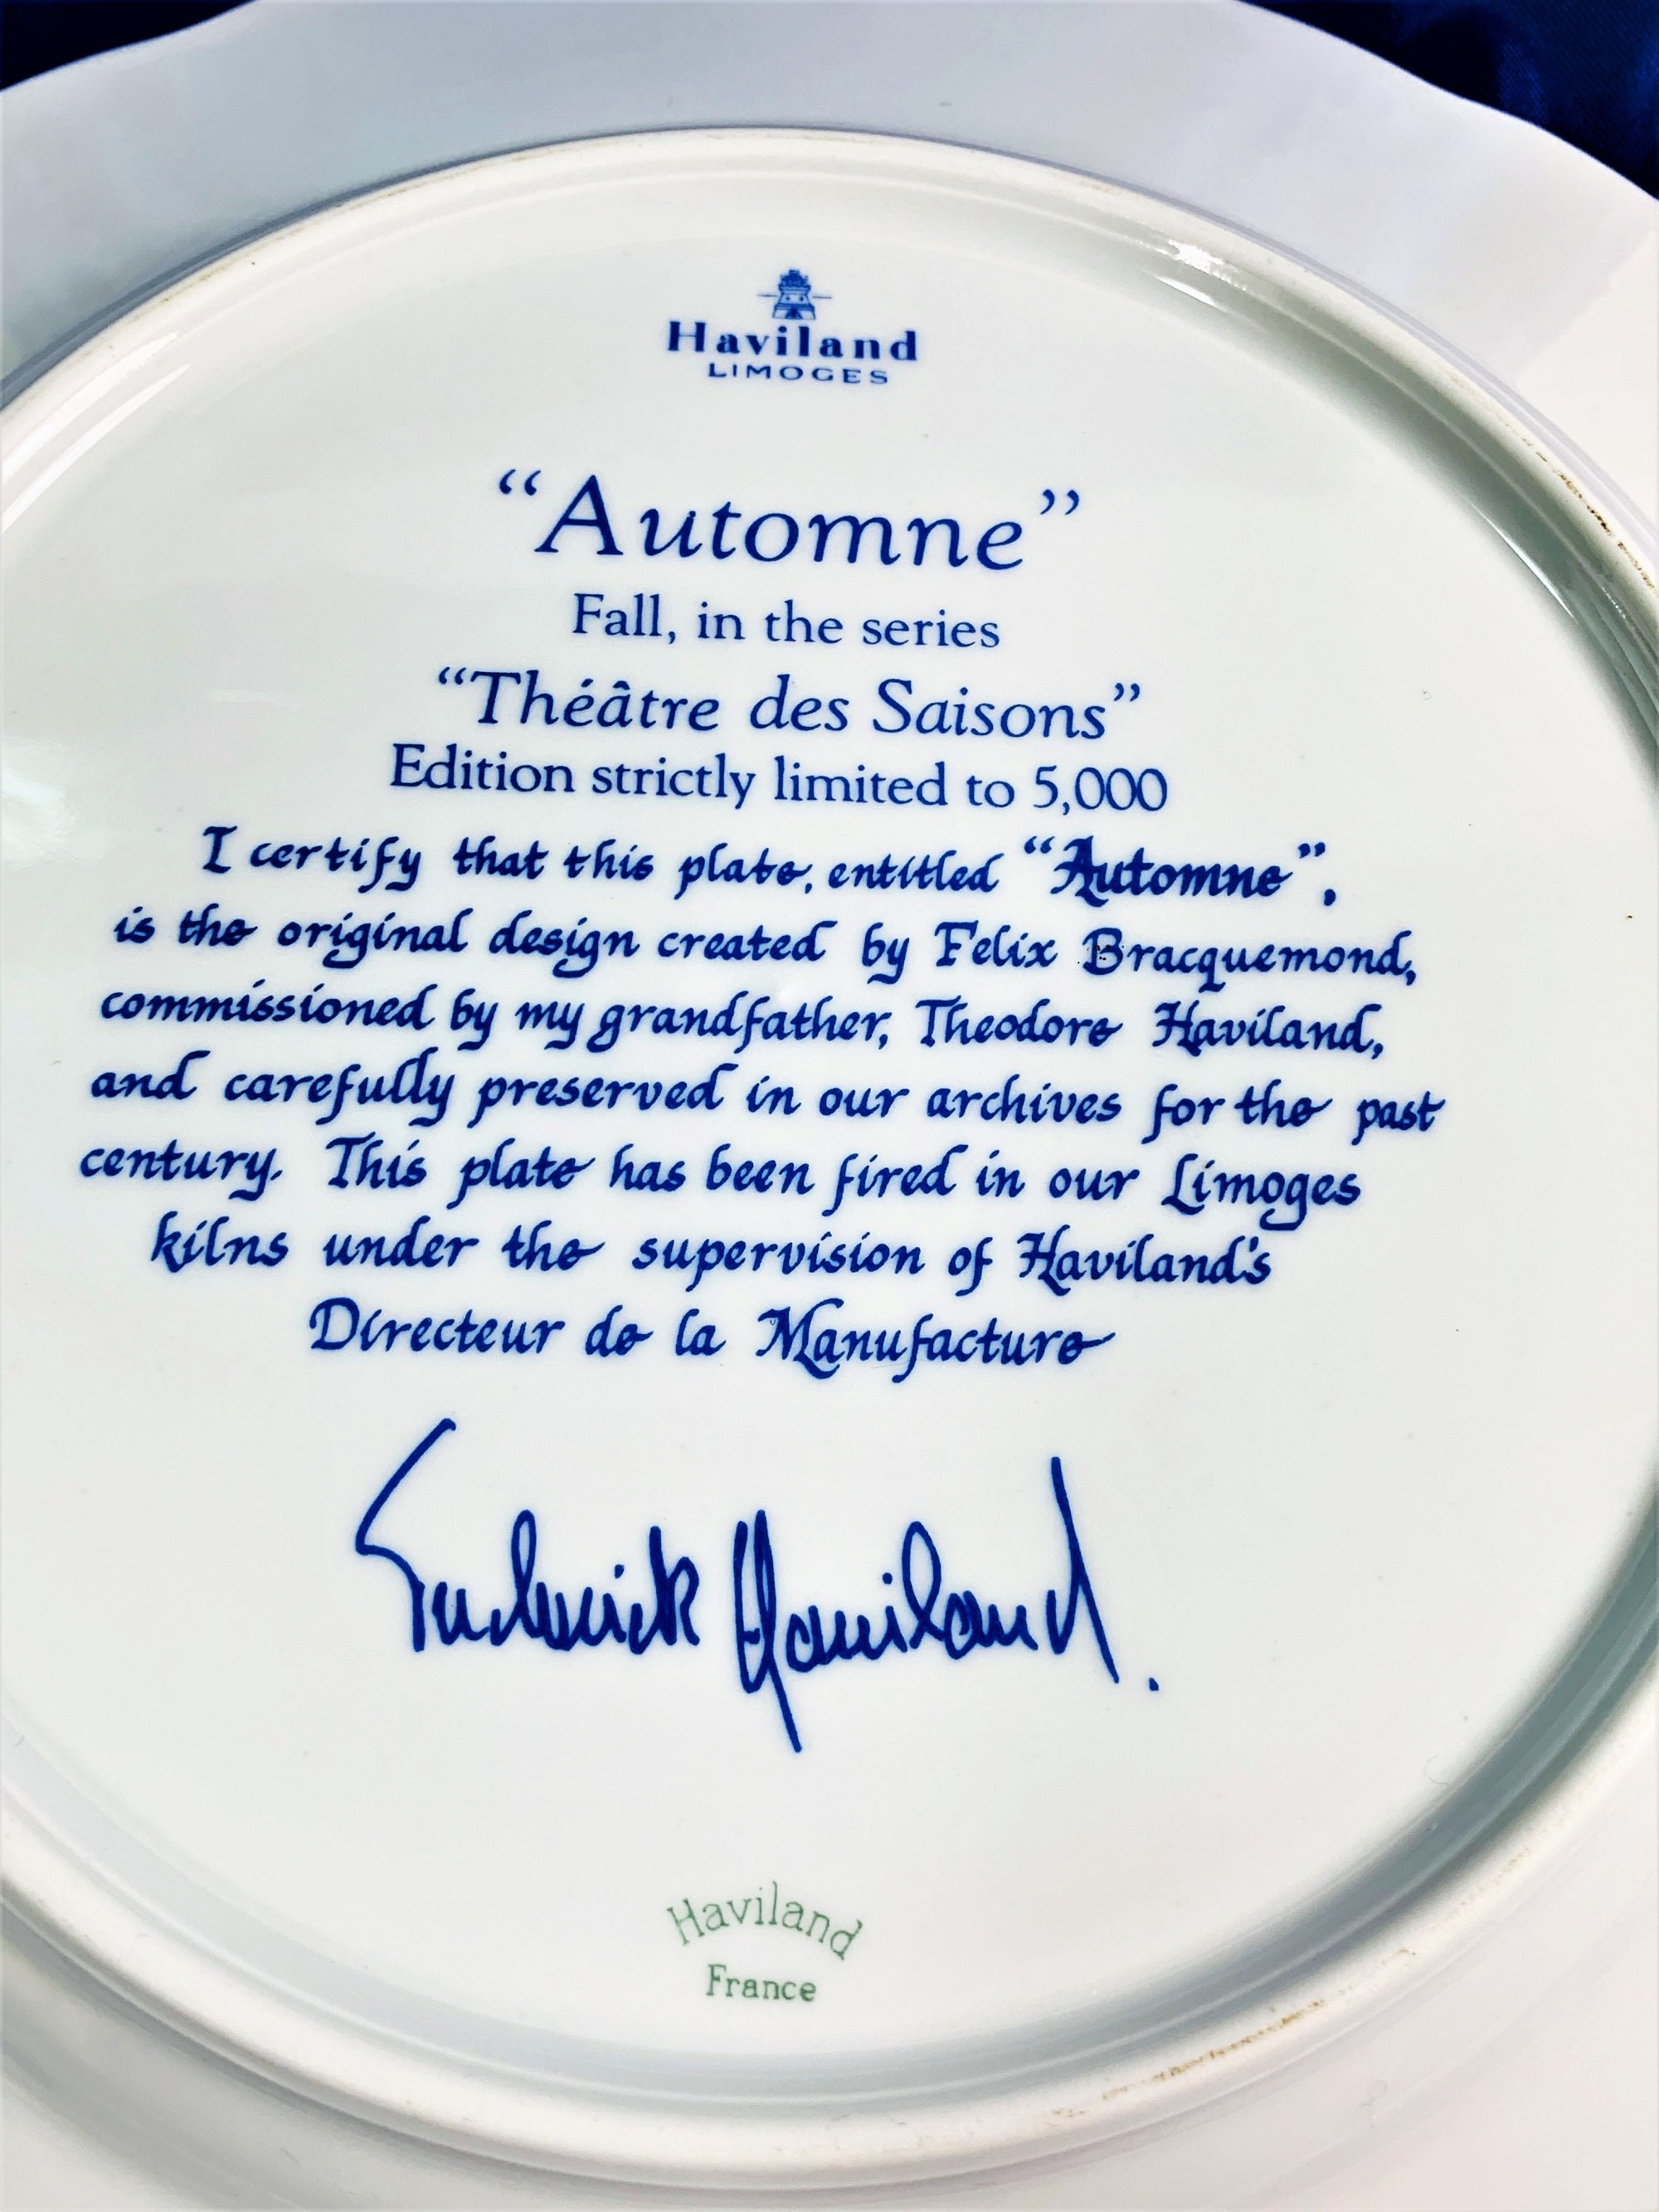 Haviland
LIMOGES
“Automne”
Fall, in the series
“Théâtre des Saisons”
Edition strictly limited to 5,000
I certify that this plate, entitled “Automne”,
is the original design created by Felix Bracquemond,
commissioned by my grandfather, Theodore Haviland,
and carefully preserved in our archives for the past
century. This plate has been fired in our Limoges
kilns under the supervision of Haviland's
Directeur de la Manufacture
Frederick Haviland.
Haviland
France